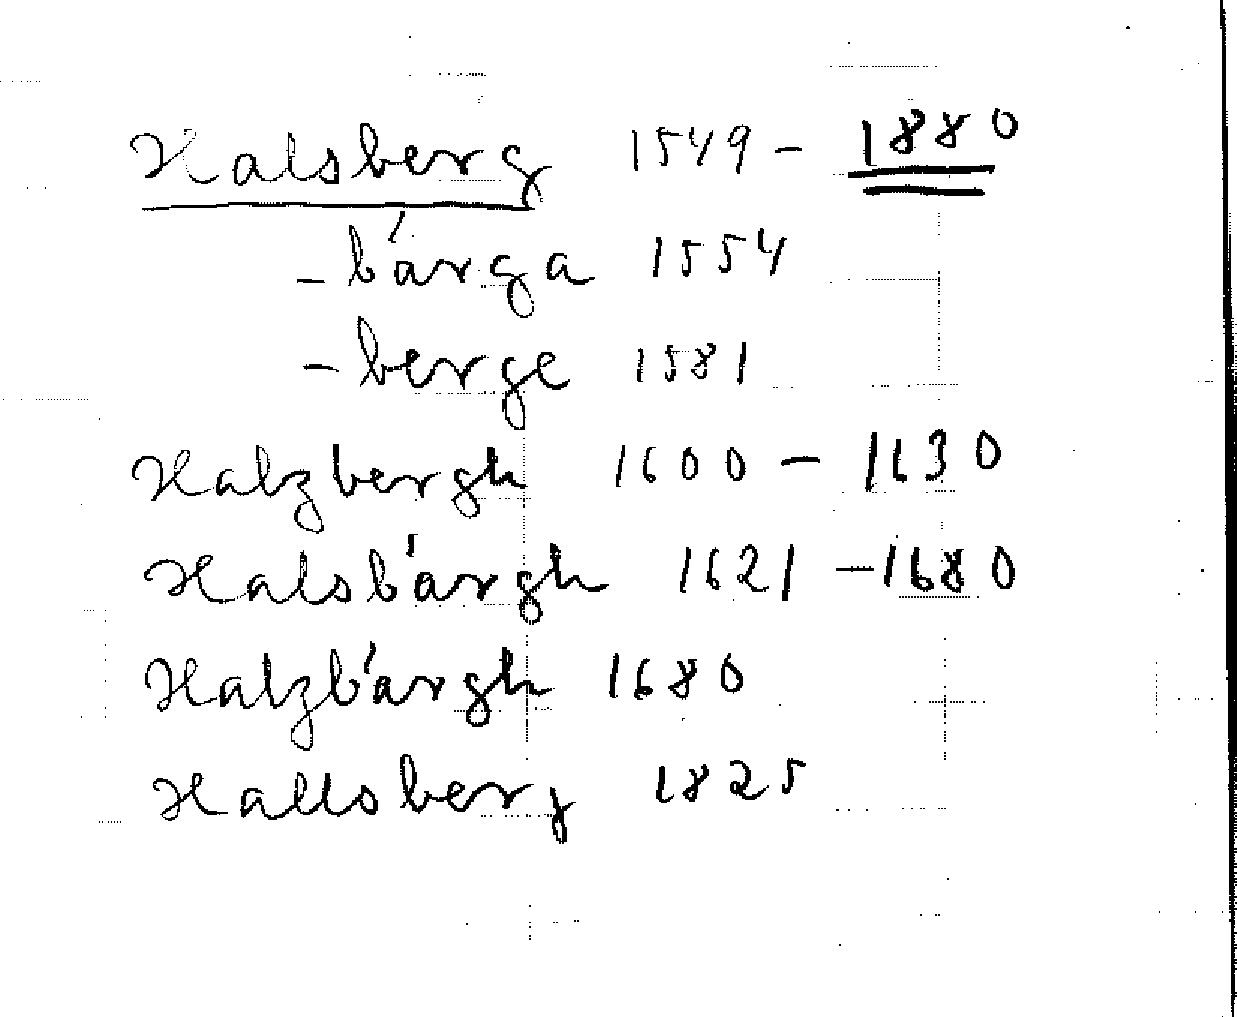 Halsberg 1549 - 1880
- bärga 1554
- berge 1581
Halzbergh 1600 - 1630
Halsbärgh 1621 - 1680
Halzbärgh 1680
Hallsberg 1825